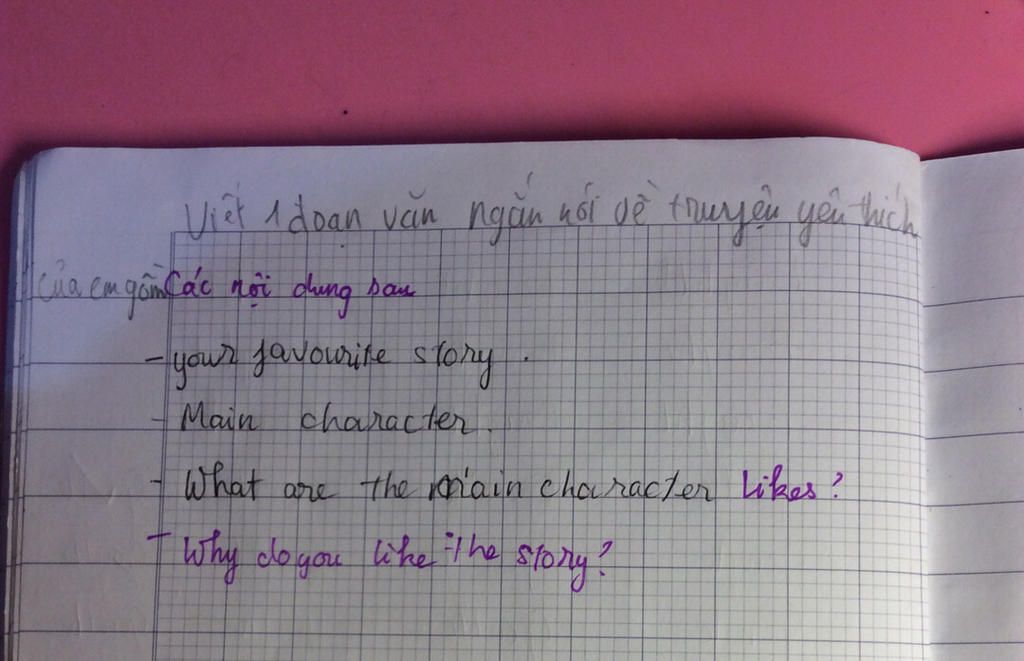 Viết 1 đoạn văn ngắn nói về truyện yêu thích
của em gồm các nội dung sau
- your favourite story.
- Main character.
- What are the main character likes?
- Why do you like the story?